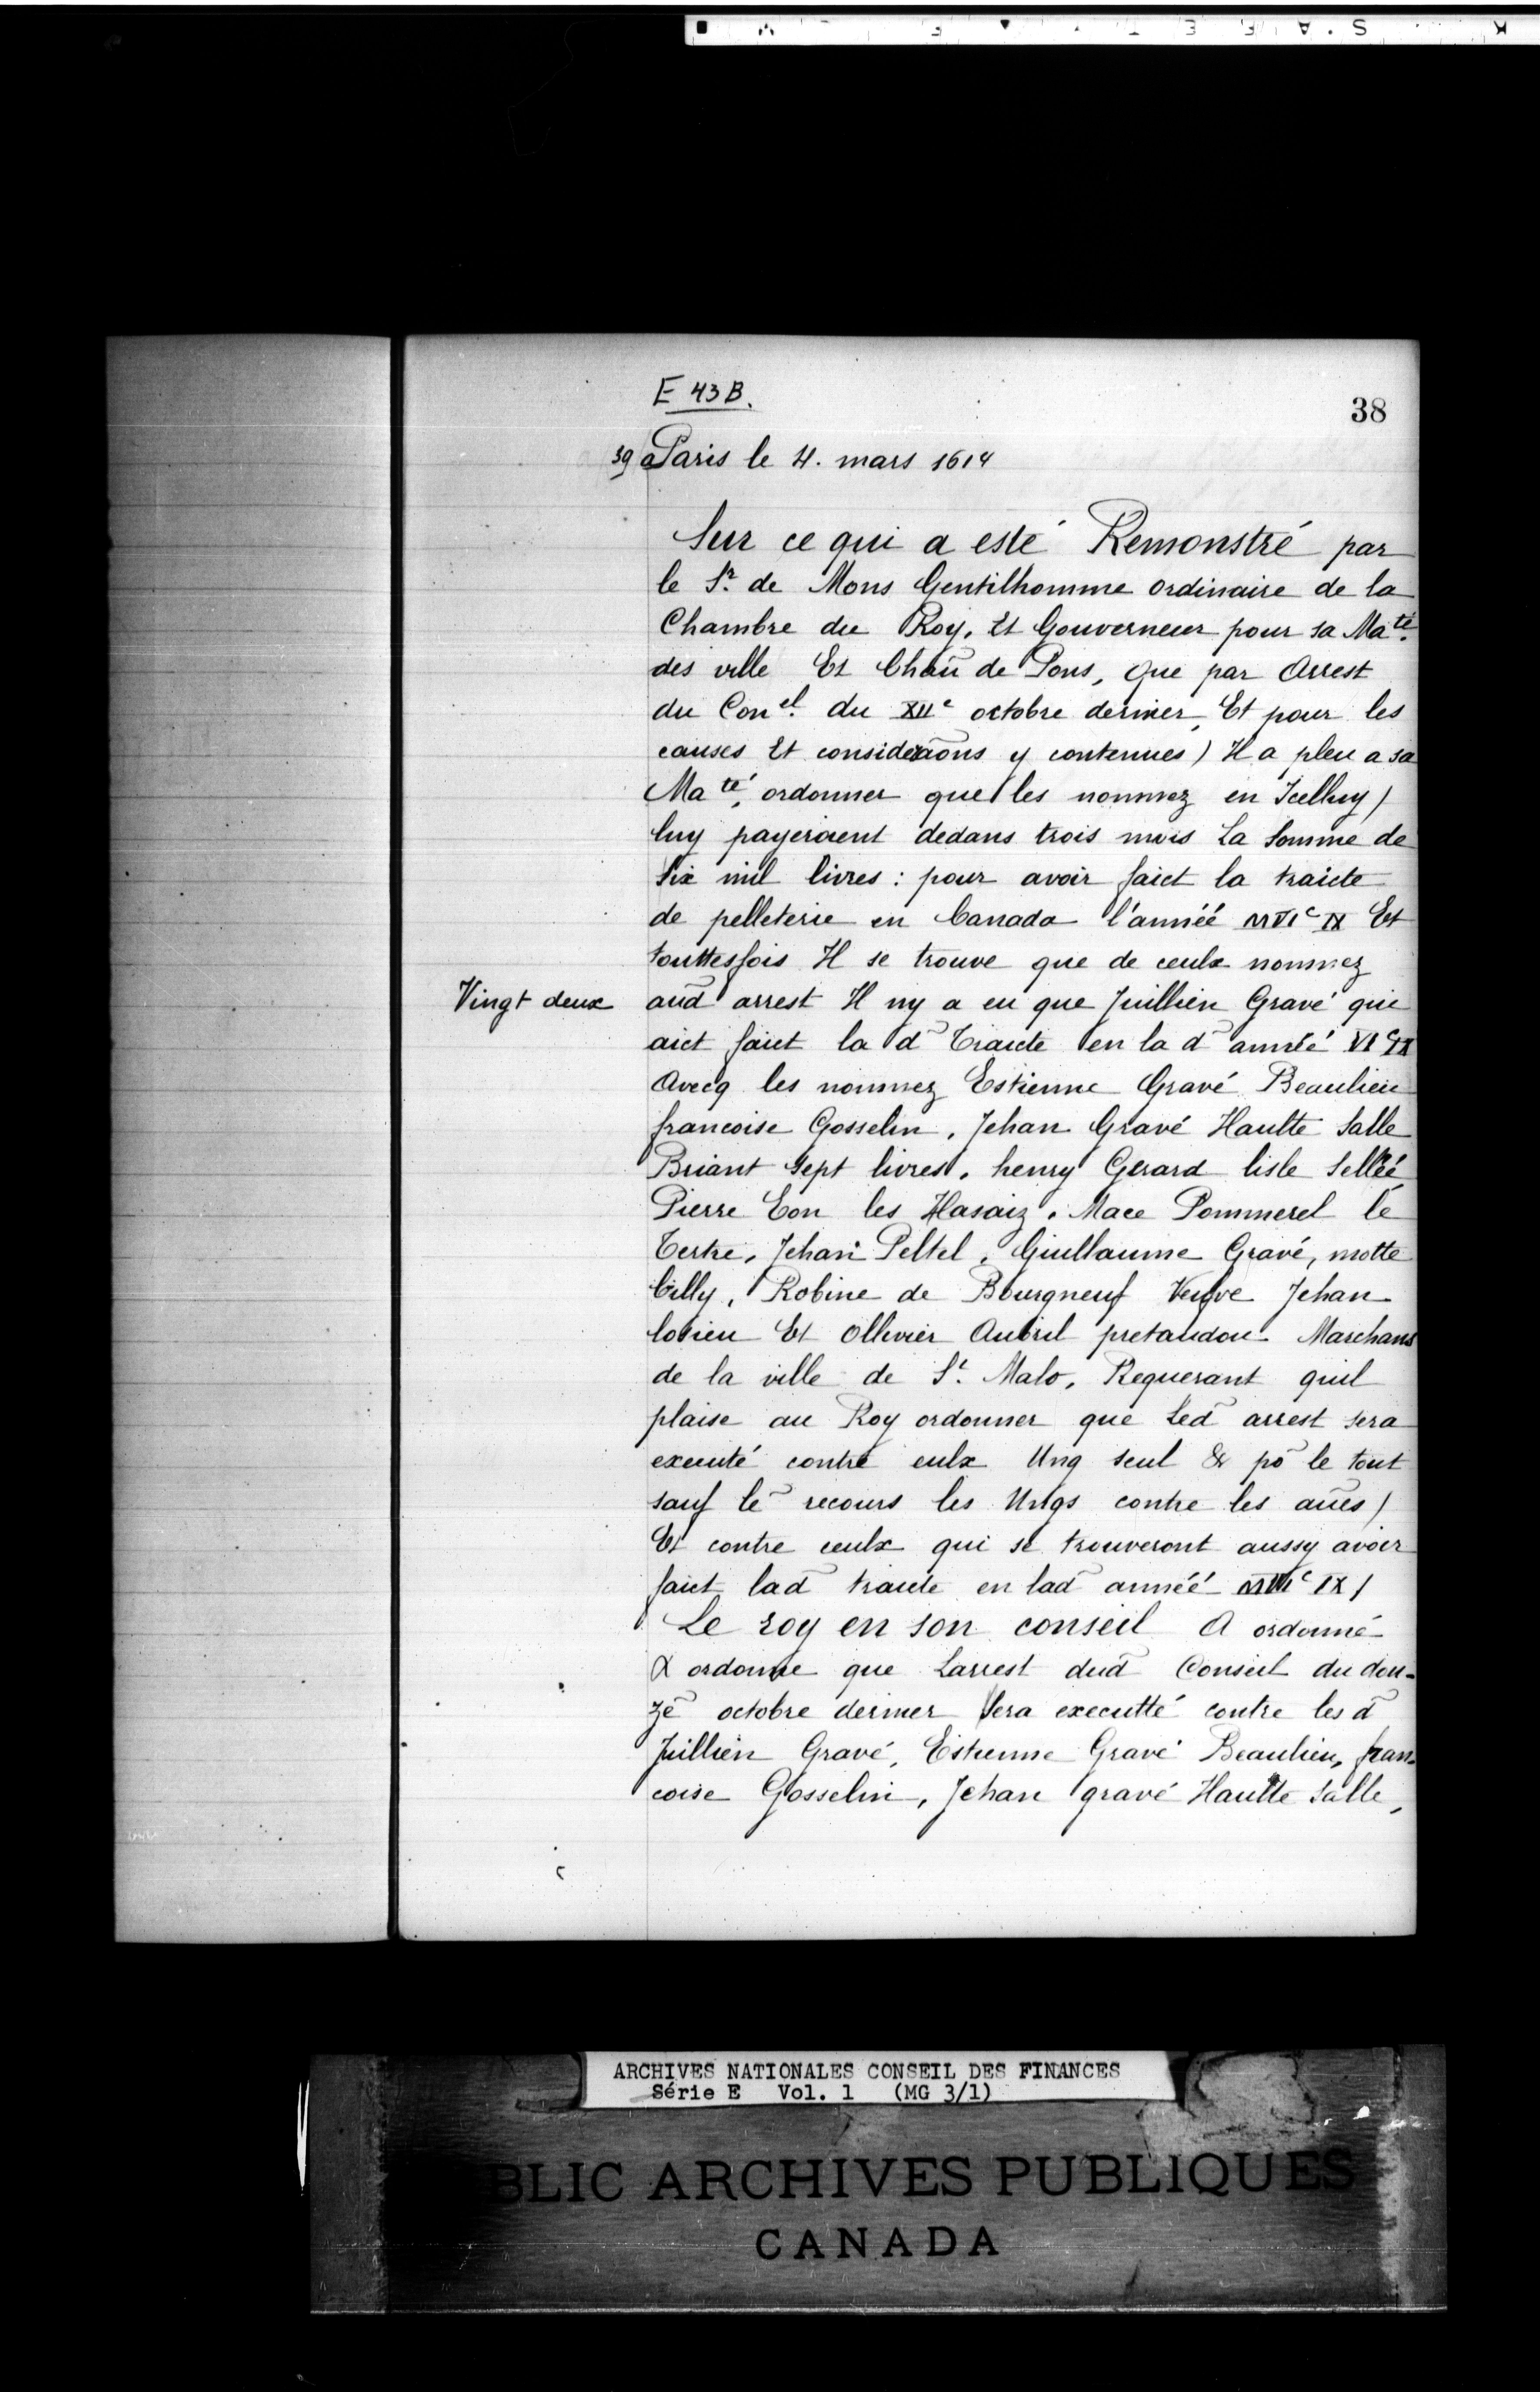 E 43 B.
38
39 a Paris le 4. mars 1614
Sur ce qui a esté Remonstré par
le Sr. de Mons Gentilhomme ordinaire de la
Chambre du Roy, Et Gouverneur pour sa Maté.
des ville Et Chaũ de Pons, que par Arrest
du Conel. du XIIe octobre dernier, Et pour les
causes Et consideraõns y contenues) Il a pleu a sa
Maté, ordonner que les nommez en Icelluy)
luy payeroient dedans trois mois La Somme de
Six mil livres : pour avoir faict la traicte
de pelleterie en Canada l'annéé MVIc IX Et
touttesfois Il se trouve que de ceulx nommez
Vingt deux
aud̃ arrest Il ny a eu que Juillien Gravé qui
aict faict la d̃ Traicte en la d̃ annéé VIc IX
Avecq les nommez Estienne Gravé Beaulieu
francoise Gosselin, Jehan Gravé Haulte Salle
Briant Sept livres, henry Gerard lisle Selléé
Pierre Eon les Hasaiz, Mace Pommerel le
Tertre, Jehan Peltel, Guillaume Gravé, motte
Cilly, Robine de Bourgneuf Veufve Jehan
losieu Et Ollivier Aubril pretandou Marchans
de la ville de St. Malo, Requerant quil
plaise au Roy ordonner que Led̃ arrest sera
executé contre eulx Ung seul & põ le tout
sauf le recours les Ungs contre les aũes)
Et contre ceulx qui se trouveront aussy avoir
faict lad̃ traicte en lad̃ annéé MVIc IX /
Le roy en son conseil A ordonné
& ordonne que Larrest dud̃ Conseil du dou-
zẽ octobre dernier Sera executté contre les d̃
Juillien Gravé, Estienne Gravé Beaulieu, fran-
coise Gosselin, Jehan gravé Haulte Salle,
ARCHIVES NATIONALES CONSEIL DES FINANCES
Série E Vol. 1 (MG 3/1)
BLIC ARCHIVES PUBLIQUES
CANADA